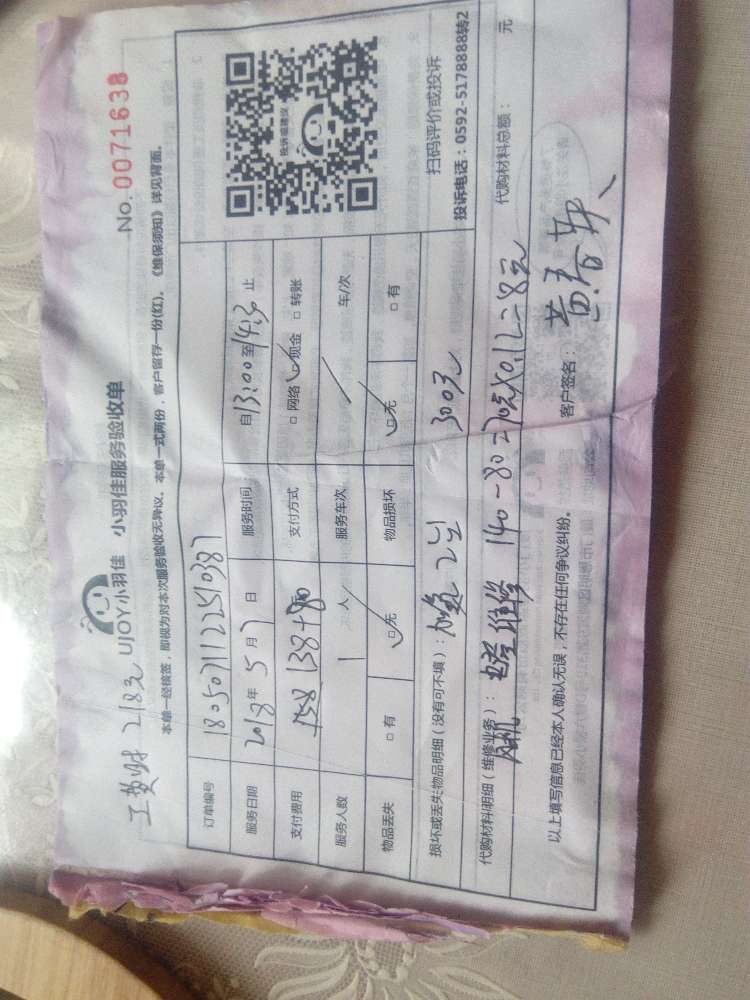 No. 0071638
工费时 218元 UJOY小羽佳 小羽佳服务验收单
本单一经核签，即视为对本次服务验收无异议。本单一式两份，客户留存一份(红)。《维保须知》详见背面。
订单编号 1805071122510387
服务日期 2018年 5月 7日 服务时间： 自13:00至14:3 止
支付费用 138+80 支付方式 □ 网络 □ 现金 □ 转账
服务人数 1 人 服务车次 车/次
物品丢失 □ 有 □ 无 物品损坏 □ 无 □ 有
损坏或丢失物品明细（没有可不填）： 2 300元
代购材料明细（维修业务）： 维修 140-80 代购材料总额： 元
以上填写信息已经本人确认无误，不存在任何争议纠纷。 客户签名： 黄春英
投诉或建议
扫码评价或投诉
投诉电话：0592-5178888转2